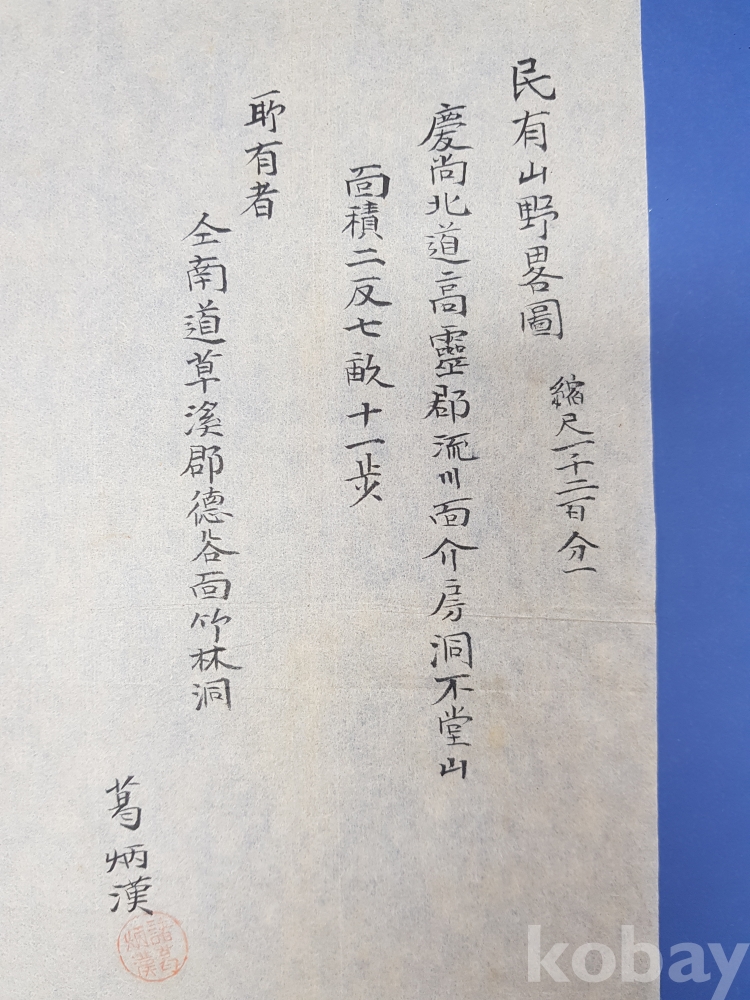 民有山野畧圖
縮尺一千二百分一
慶尙北道高靈郡流川面介房洞不堂山
面積二反七畝十一步
所有者
仝南道草溪郡德谷面竹林洞
葛炳漢
諸葛炳漢
kobay